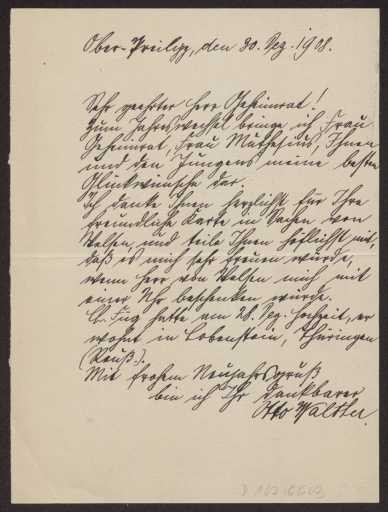 Ober-Preilipp, den 30. Dez. 1908.
Sehr geehrter Herr Geheimrat!
Zum Jahreswechsel bringe ich Frau
Geheimrat, Frau Mathesius, Ihnen
und den Jungens meine besten
Glückwünsche dar.
Ich danke Ihnen herzlichst für Ihre
freundliche Karte in Sachen von
Welsen und teile Ihnen höflichst mit,
daß es mich sehr freuen würde,
wenn Herr von Welsen mich mit
einer Uhr beschenken würde.
E. Fug hatte am 28. Dez. Hochzeit, er
wohnt in Lobenstein, Thüringen
(Reuß.).
Mit frohem Neujahrsgruß
bin ich Ihr dankbarer
Otto Walther.